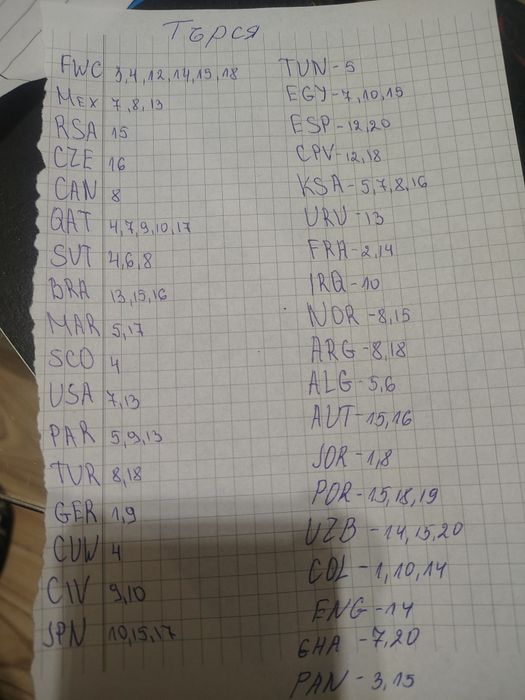 Търся
FWC 3,4,12,14,15,18
MEX 7,8,13
RSA 15
CZE 16
CAN 8
QAT 4,7,9,10,17
SUT 4,6,8
BRA 13,15,16
MAR 5,17
SCO 4
USA 7,13
PAR 5,9,13
TUR 8,18
GER 1,9
CUW 4
CIV 9,10
JPN 10,15,17
TUN-5
EGY-7,10,15
ESP-12,20
CPV-12,18
KSA-5,7,8,16
URU-13
FRA-2,14
IRQ-10
NOR-8,15
ARG-8,18
ALG-5,6
AUT-15,16
JOR-1,8
POR-15,18,19
UZB-14,15,20
COL-1,10,14
ENG-14
GHA-7,20
PAN-3,15